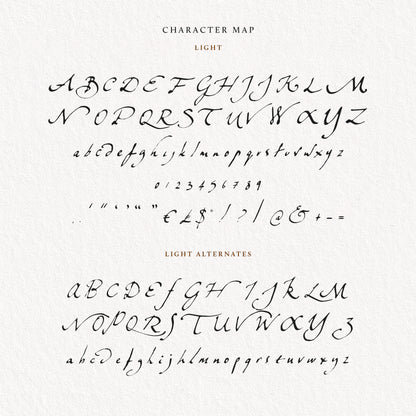 CHARACTER MAP
LIGHT
ABCDEFGHIJKLM
NOPQRSTUVWXYZ
abcdefghijklmnopqrstuvwxyz
0123456789
.,'"‘,“„”€£$!?/@&+-=
LIGHT ALTERNATES
aBCDEfGHIJkLM
NOPQRSTUVWXYZ
abcdefghijklmnopqrstuvwxyz